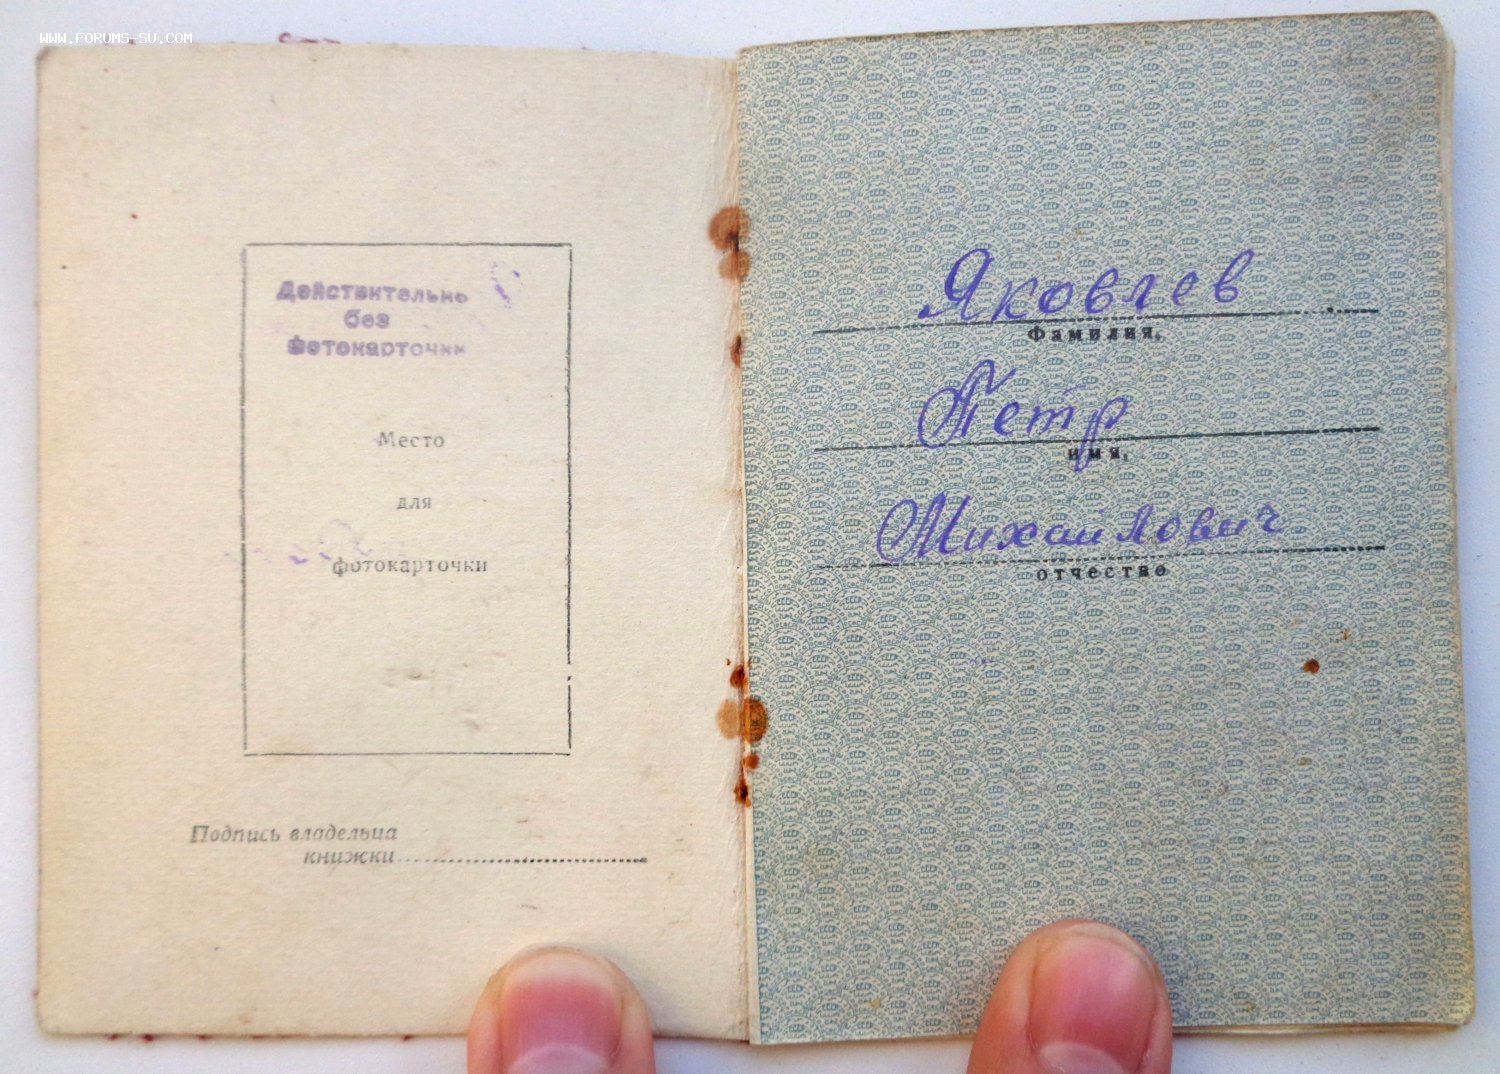 WWW.FORUMS-SU.COM
Действительно
без
фотокарточки
Место
для
фотокарточки
Подпись владельца
книжки
Яковлев
Фамилия,
Петр
имя,
Михаилович
отчество